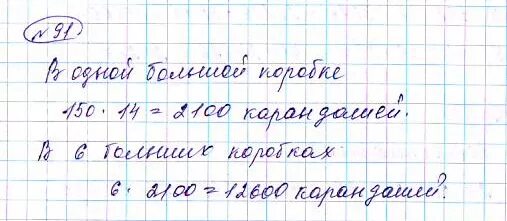 № 91
В одной большой коробке
150 · 14 = 2100 карандашей.
В 6 больших коробках
6 · 2100 = 12600 карандашей.